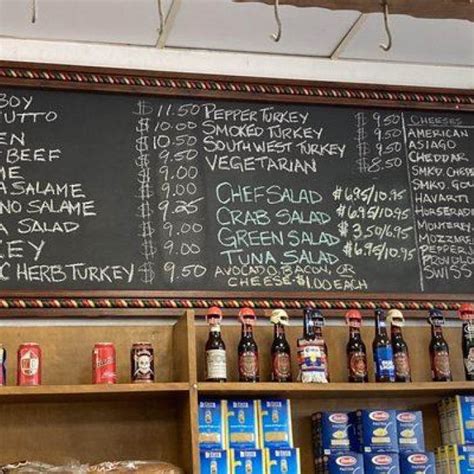 BOY $11.50
UTTO $10.00
EN $10.50
BEEF $9.50
ME $9.00
A SALAME $9.00
NO SALAME $9.25
A SALAD $9.00
KEY $9.00
C HERB TURKEY $9.50
PEPPER TURKEY $9.50
SMOKED TURKEY $9.50
SOUTHWEST TURKEY $9.50
VEGETARIAN $8.50
CHEF SALAD $6.95/10.95
CRAB SALAD $6.95/10.95
GREEN SALAD $3.50/6.95
TUNA SALAD $6.95/10.95
AVOCADO, BACON, OR
CHEESE $1.00 EACH
CHEESES
AMERICAN
ASIAGO
CHEDDAR
SMKD. CHED
SMKD. GO
HAVARTI
HORSERA
MONTEREY
MOZZAR
PEPPER
PROVOLO
SWISS